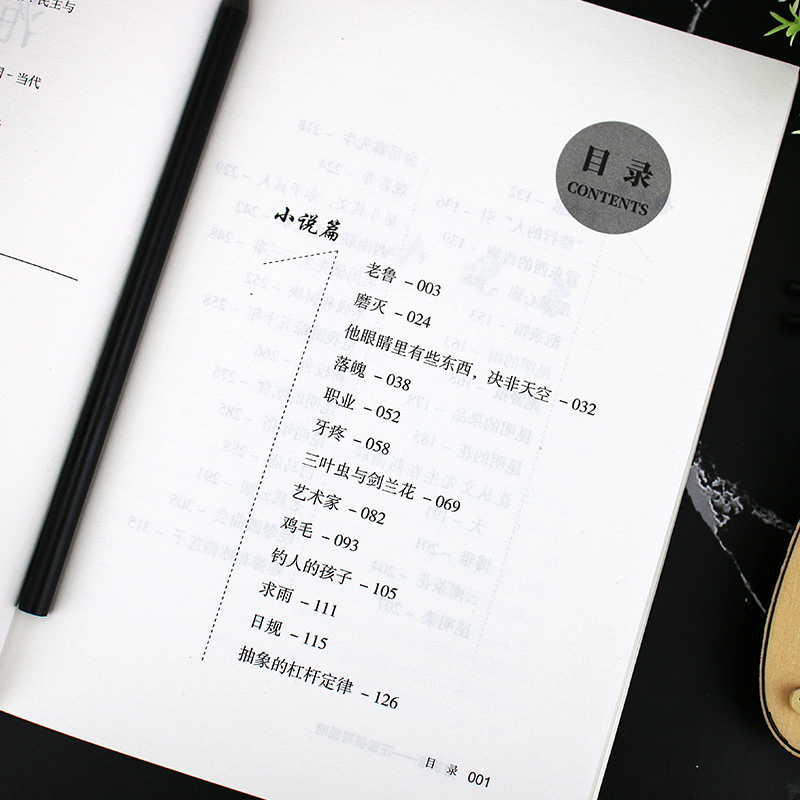 民主与
- 当代
目录
CONTENTS
小说篇
老鲁 – 003
磨灭 – 024
他眼睛里有些东西，决非天空 – 032
落魄 – 038
职业 – 052
牙疼 – 058
三叶虫与剑兰花 – 069
艺术家 – 082
鸡毛 – 093
钓人的孩子 – 105
求雨 – 111
日规 – 115
抽象的杠杆定律 – 126
目 录 001